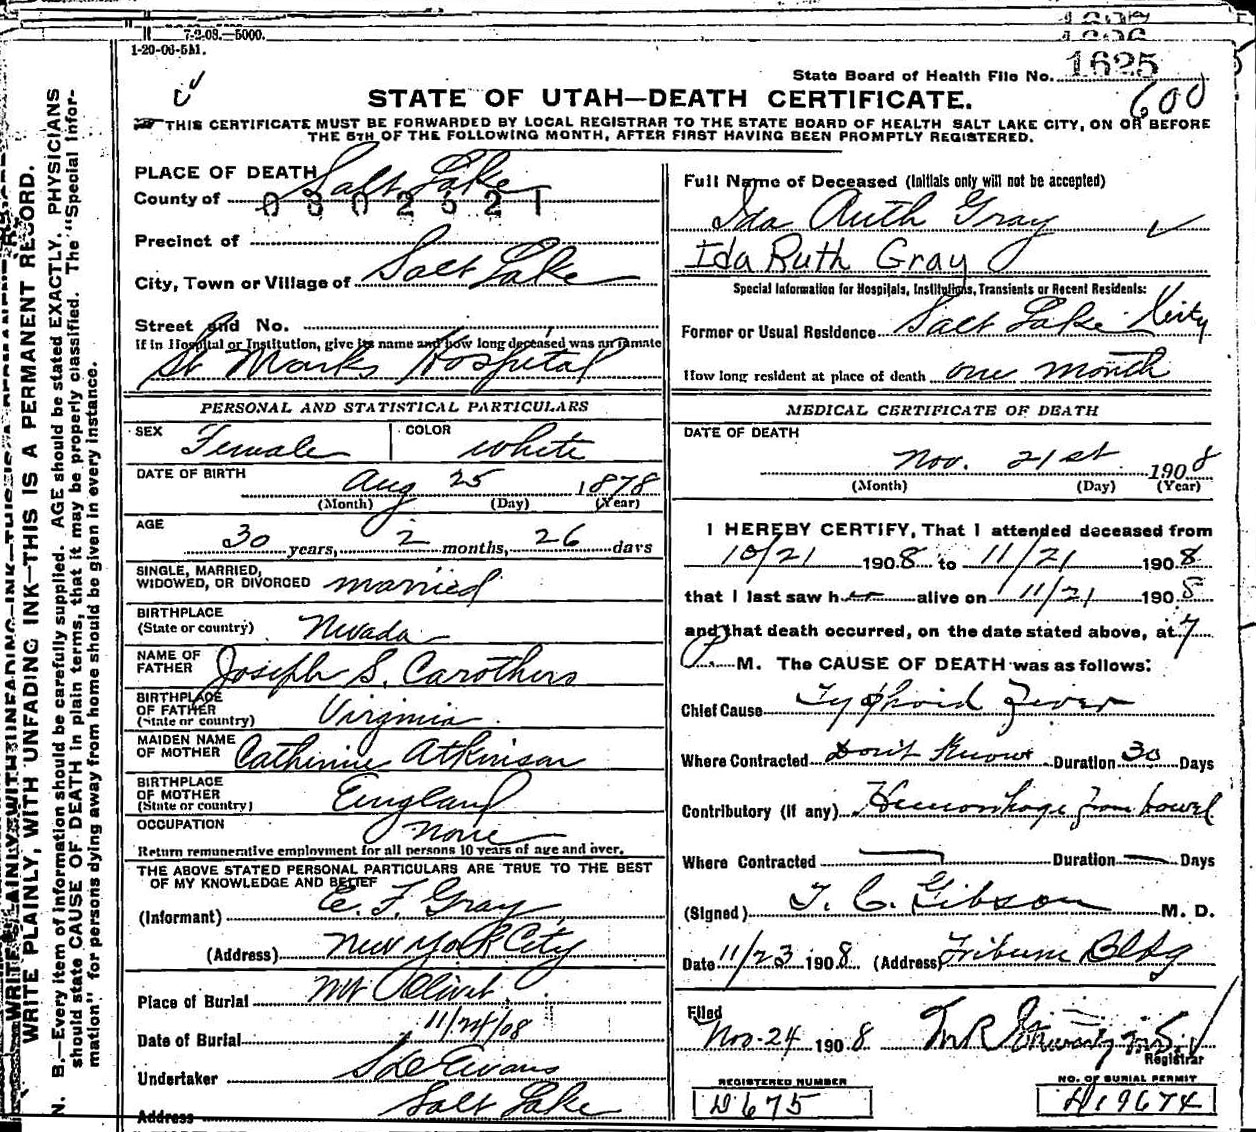 7-2-08.—5000.
1-20-06-5M.
State Board of Health File No. 1625
600
STATE OF UTAH—DEATH CERTIFICATE.
THIS CERTIFICATE MUST BE FORWARDED BY LOCAL REGISTRAR TO THE STATE BOARD OF HEALTH SALT LAKE CITY, ON OR BEFORE
THE 5TH OF THE FOLLOWING MONTH, AFTER FIRST HAVING BEEN PROMPTLY REGISTERED.
WRITE PLAINLY, WITH UNFADING INK—THIS IS A PERMANENT RECORD.
N. B.—Every item of information should be carefully supplied. AGE should be stated EXACTLY. PHYSICIANS
should state CAUSE OF DEATH in plain terms, that it may be properly classified. The "Special Infor-
mation" for persons dying away from home should be given in every instance.
PLACE OF DEATH
County of Salt Lake
0302621
Precinct of
City, Town or Village of Salt Lake
Street and No.
If in Hospital or Institution, give its name and how long deceased was an inmate
St Marks Hospital
PERSONAL AND STATISTICAL PARTICULARS
SEX Female COLOR white
DATE OF BIRTH Aug 25 1878
(Month) (Day) (Year)
AGE
30 years, 2 months, 26 days
SINGLE, MARRIED,
WIDOWED, OR DIVORCED married
BIRTHPLACE
(State or country) Nevada
NAME OF
FATHER Joseph S. Carothers
BIRTHPLACE
OF FATHER
(State or country) Virginia
MAIDEN NAME
OF MOTHER Catherine Atkinson
BIRTHPLACE
OF MOTHER
(State or country) England
OCCUPATION none
Return remunerative employment for all persons 10 years of age and over.
THE ABOVE STATED PERSONAL PARTICULARS ARE TRUE TO THE BEST
OF MY KNOWLEDGE AND BELIEF
(Informant) E. F. Gray
(Address) New York City
Place of Burial Mt Olivet
Date of Burial 11/24/08
Undertaker S D Evans
Address Salt Lake
Full Name of Deceased (Initials only will not be accepted)
Ida Ruth Gray
Ida Ruth Gray
Special Information for Hospitals, Institutions, Transients or Recent Residents:
Former or Usual Residence Salt Lake City
How long resident at place of death one month
MEDICAL CERTIFICATE OF DEATH
DATE OF DEATH
Nov. 21st 1908
(Month) (Day) (Year)
I HEREBY CERTIFY, That I attended deceased from
10/21 1908 to 11/21 1908
that I last saw her alive on 11/21 1908
and that death occurred, on the date stated above, at 7
P. M. The CAUSE OF DEATH was as follows:
Chief Cause Typhoid Fever
Where Contracted Don't Know Duration 30 Days
Contributory (if any) Hemorrhage from bowel
Where Contracted — Duration — Days
(Signed) T. C. Gibson M. D.
Date 11/23 1908 (Address) Tribune Bldg
Filed
Nov-24 1908
Registrar
REGISTERED NUMBER
D675
NO. OF BURIAL PERMIT
H19674